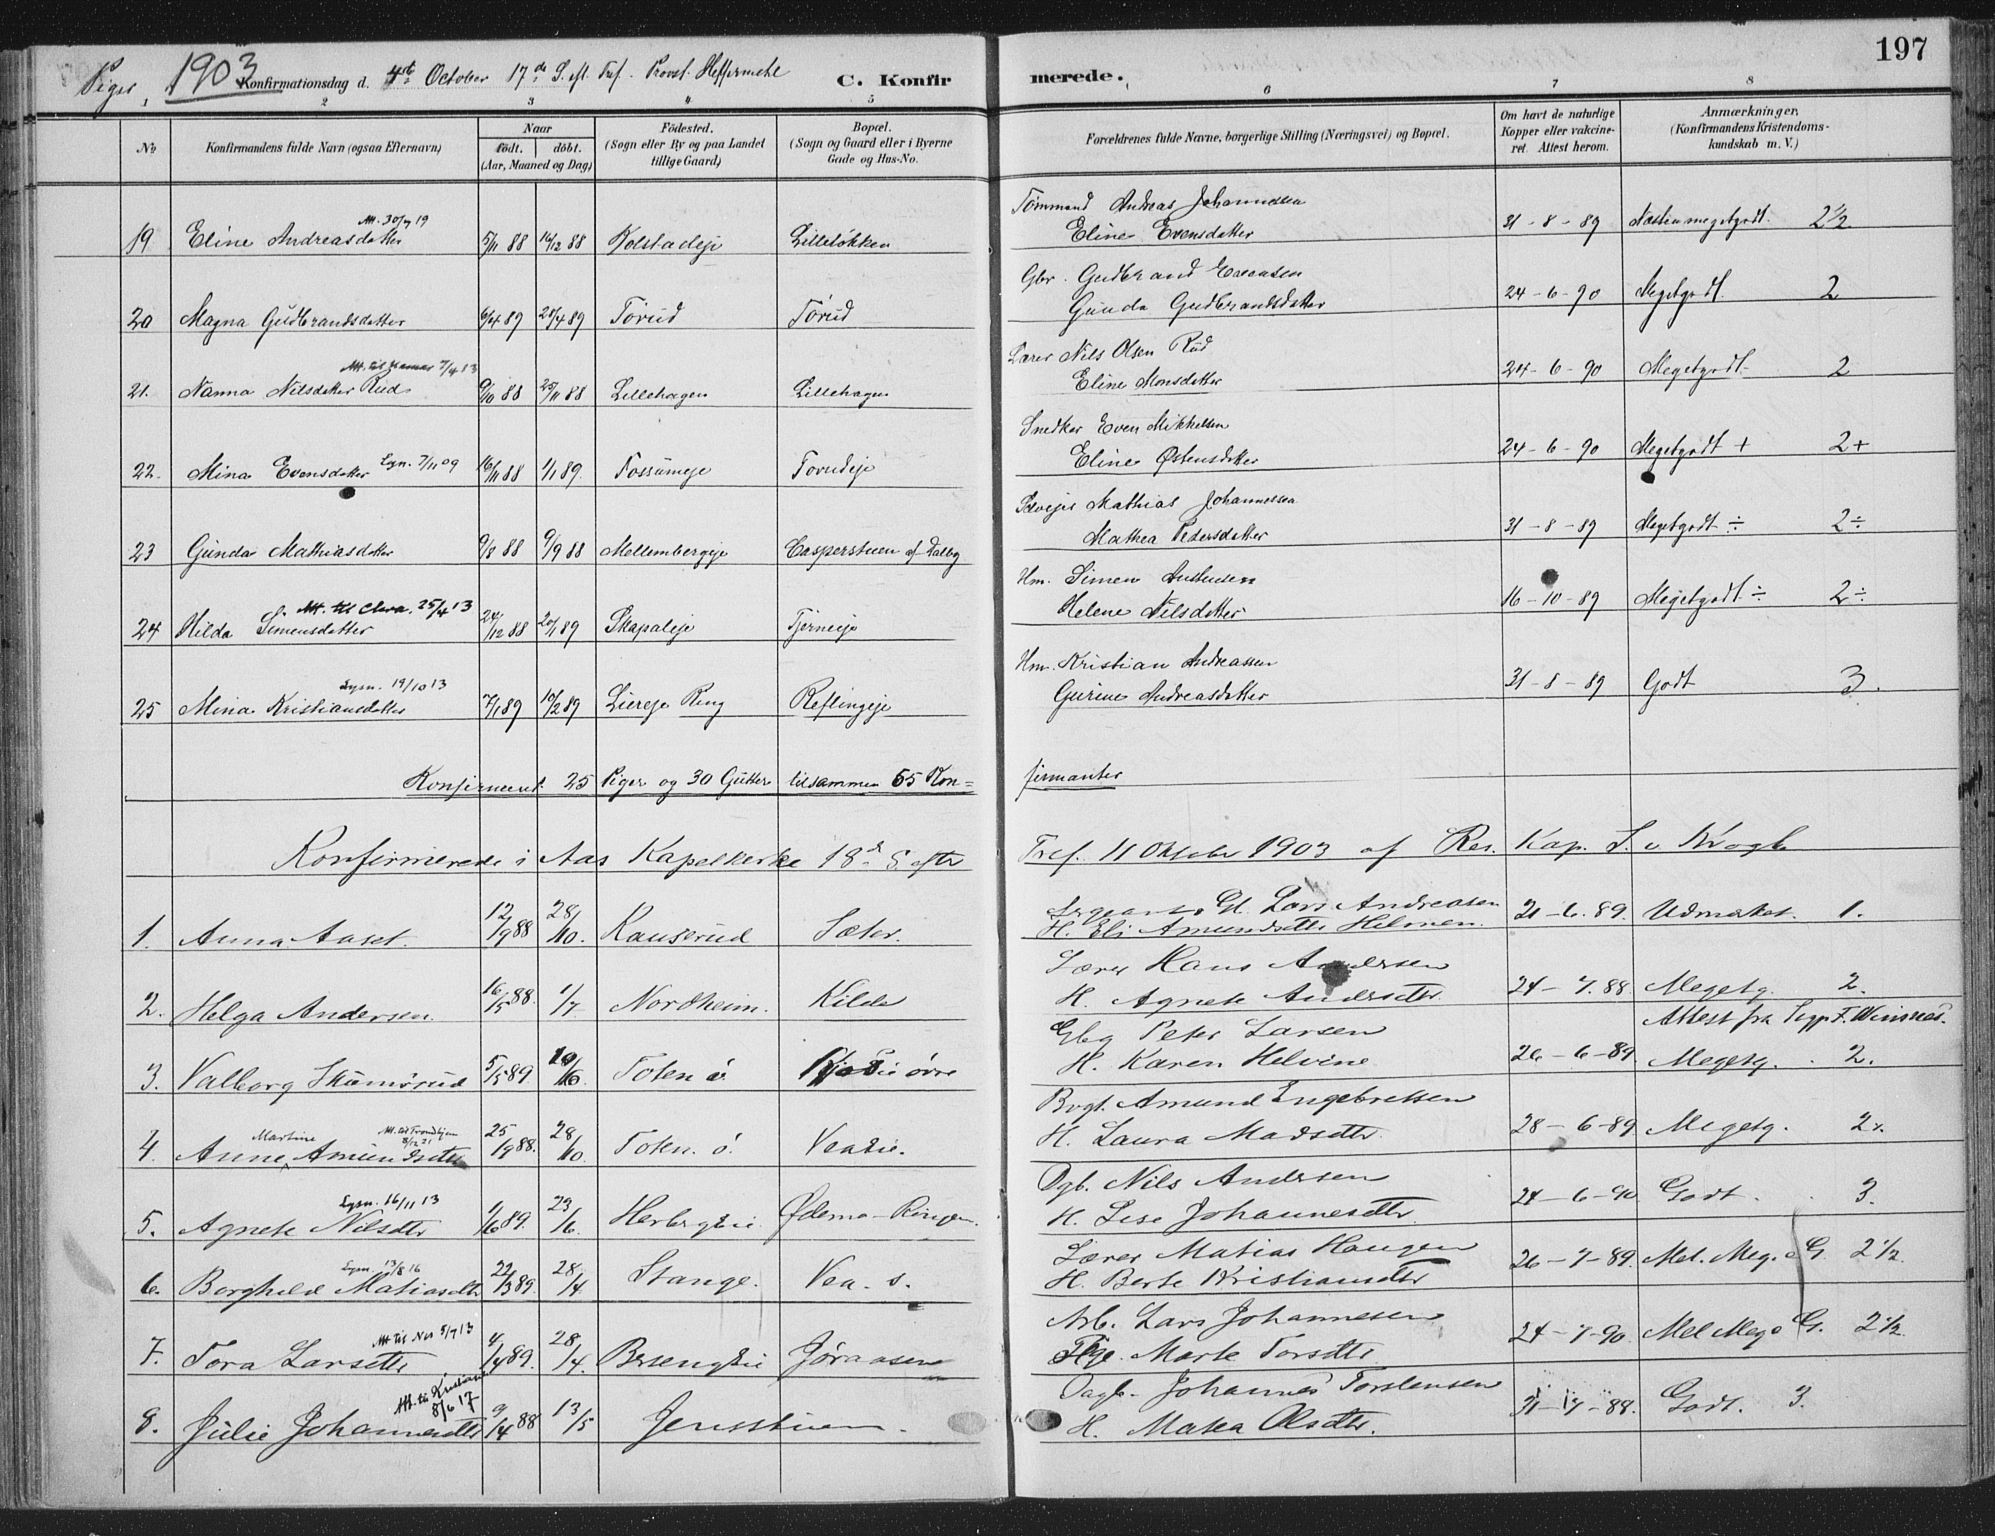 197
Piger, 1903 Konfirmationsdag d. 4de October 17de S. eft. Tref. Provst Heffermehl C. Konfirmerede.
1 2 3 4 5 6 7 8
No Konfirmandens fulde Navn (ogsaa Efternavn) Naar født. døbt. (Aar, Maaned og Dag) Fødested. (Sogn eller By og paa Landet tillige Gaard) Bopæl. (Sogn og Gaard eller i Byerne Gade og Hus-No. Forældrenes fulde Navne, borgerlige Stilling (Næringsvei) og Bopæl. Om havt de naturlige Kopper eller vakcineret. Attest herom. Anmærkninger. (Konfirmandens Kristendomskundskab m. V.)
Att. 30/9 19 Tømmermd Andreas Johannessen
19 Eline Andreasdatter 5/11 88 16/12 88 Kolstadeje Lilleløkken Eline Evensdatter 31-8-89 Næsten megetgodt. 2 1/2
Gbr. Gudbrand Evensen
20 Magna Gudbrandsdatter 6/4 89 28/4 89 Torud Torud Gunda Gudbrandsdatter 24-6-90 Megetgodt. 2
Att. til Hamar 7/4 13 Lærer Nils Olsen Rud
21. Nanna Nilsdatter Rud 9/10 88 25/11 88 Lillehagen Lillehagen Eline Monsdatter 24-6-90 Megetgodt 2
Snedker Even Mikkelsen
22. Mina Evensdatter Lysn. 7/11 09 16/11 88 1/1 89. Fossumeje Torudeje Eline Østensdatter 24-6-90 Megetgodt + 2+
Mathias Johannessen
23 Gunda Mathiasdatter 9/8 88 9/9 88 Mellembergeje Casperstuen af Dalby Mathea Pedersdatter 31-8-89 Megetgodt ÷ 2÷
Att. til Elva. 25/4 13 Hm. Simen
24 Hilda Simensdatter 24/12 88 20/1 89 Skapaleje Tjerneje Helene Nilsdatter 16-10-89 Megetgodt ÷ 2÷
Lysn. 19/10 13 Hm. Kristian Andreassen
25 Mina Kristiansdatter 7/1 89 10/2 89 Liereje Ring Reflingeje Gurine Andreasdatter 31-8-89 Godt 3.
Konfirmeret 25 Piger og 30 Gutter tilsammen 55 Konfirmanter
Konfirmerede i Aas Kapelkirke 18de S. efter Tref. 11 Oktober 1903 af Res. Kap. L. v. Krogh
Sergeant, G. Lars Andreasen
1. Anna Aaset. 12/9 88 28/10. Kauserud Sæter. H. Eli Amundsdttr Helmen. 21-6.89. Udmærket. 1.
Lærer Hans Andersen
2. Helga Andersen. 16/5 88. 1/7 Nordheim. Kilde H. Agnete Andersdtr. 24-7.88 Megetg. 2.
Gbg Peter Larsen Attest fra Sogpr F. Winsnes.
3. Valborg Skumsrud 5/5 89. 10/6. Toten ø. øvre H. Karen Helvine 26-6-89 Megetg. 2.
Martine Att. til Trondhjem 8/12 21 Bvgt. Amund Engebretsen
4. Anne Amundsdtr 25/9 88. 28/10. Toten. ø. Veaeie. H. Laura Madsdtr. 28-6-89 Megetg. 2.
Lysn. 16/11 13 Dgb. Nils Andersen
5. Agnete Nilsdtr 1/6 89. 23/6. Herbergeie Ødemo-Ringen. H. Lise Johannesdtr. 24-6-90 Godt. 3.
Lysn. 13/8 16 Lærer Matias Haugen
6. Borghild Matiasdtr 22/3 89. 28/4 Stange. Vea. s. H. Berte Kristiansdtr 26-7-89. Mel. Meg. o G. 2 1/2.
Att til Nes 5/7 13 Arb. Lars Johannesen
7. Tora Larsdtr 4/4 89. 28/4. Besengeie Jøraasen Pige. Marte Torsdtr 24-7-90. Mel Meg o G. 2 1/2.
Att. til Kristiania 8/6 17 Dagb. Johannes Torstensen
8. Julie Johannesdtr 9/4 88 13/5 Jensstuen. H. Matea Olsdtr. 31-7-88. Godt. 3.